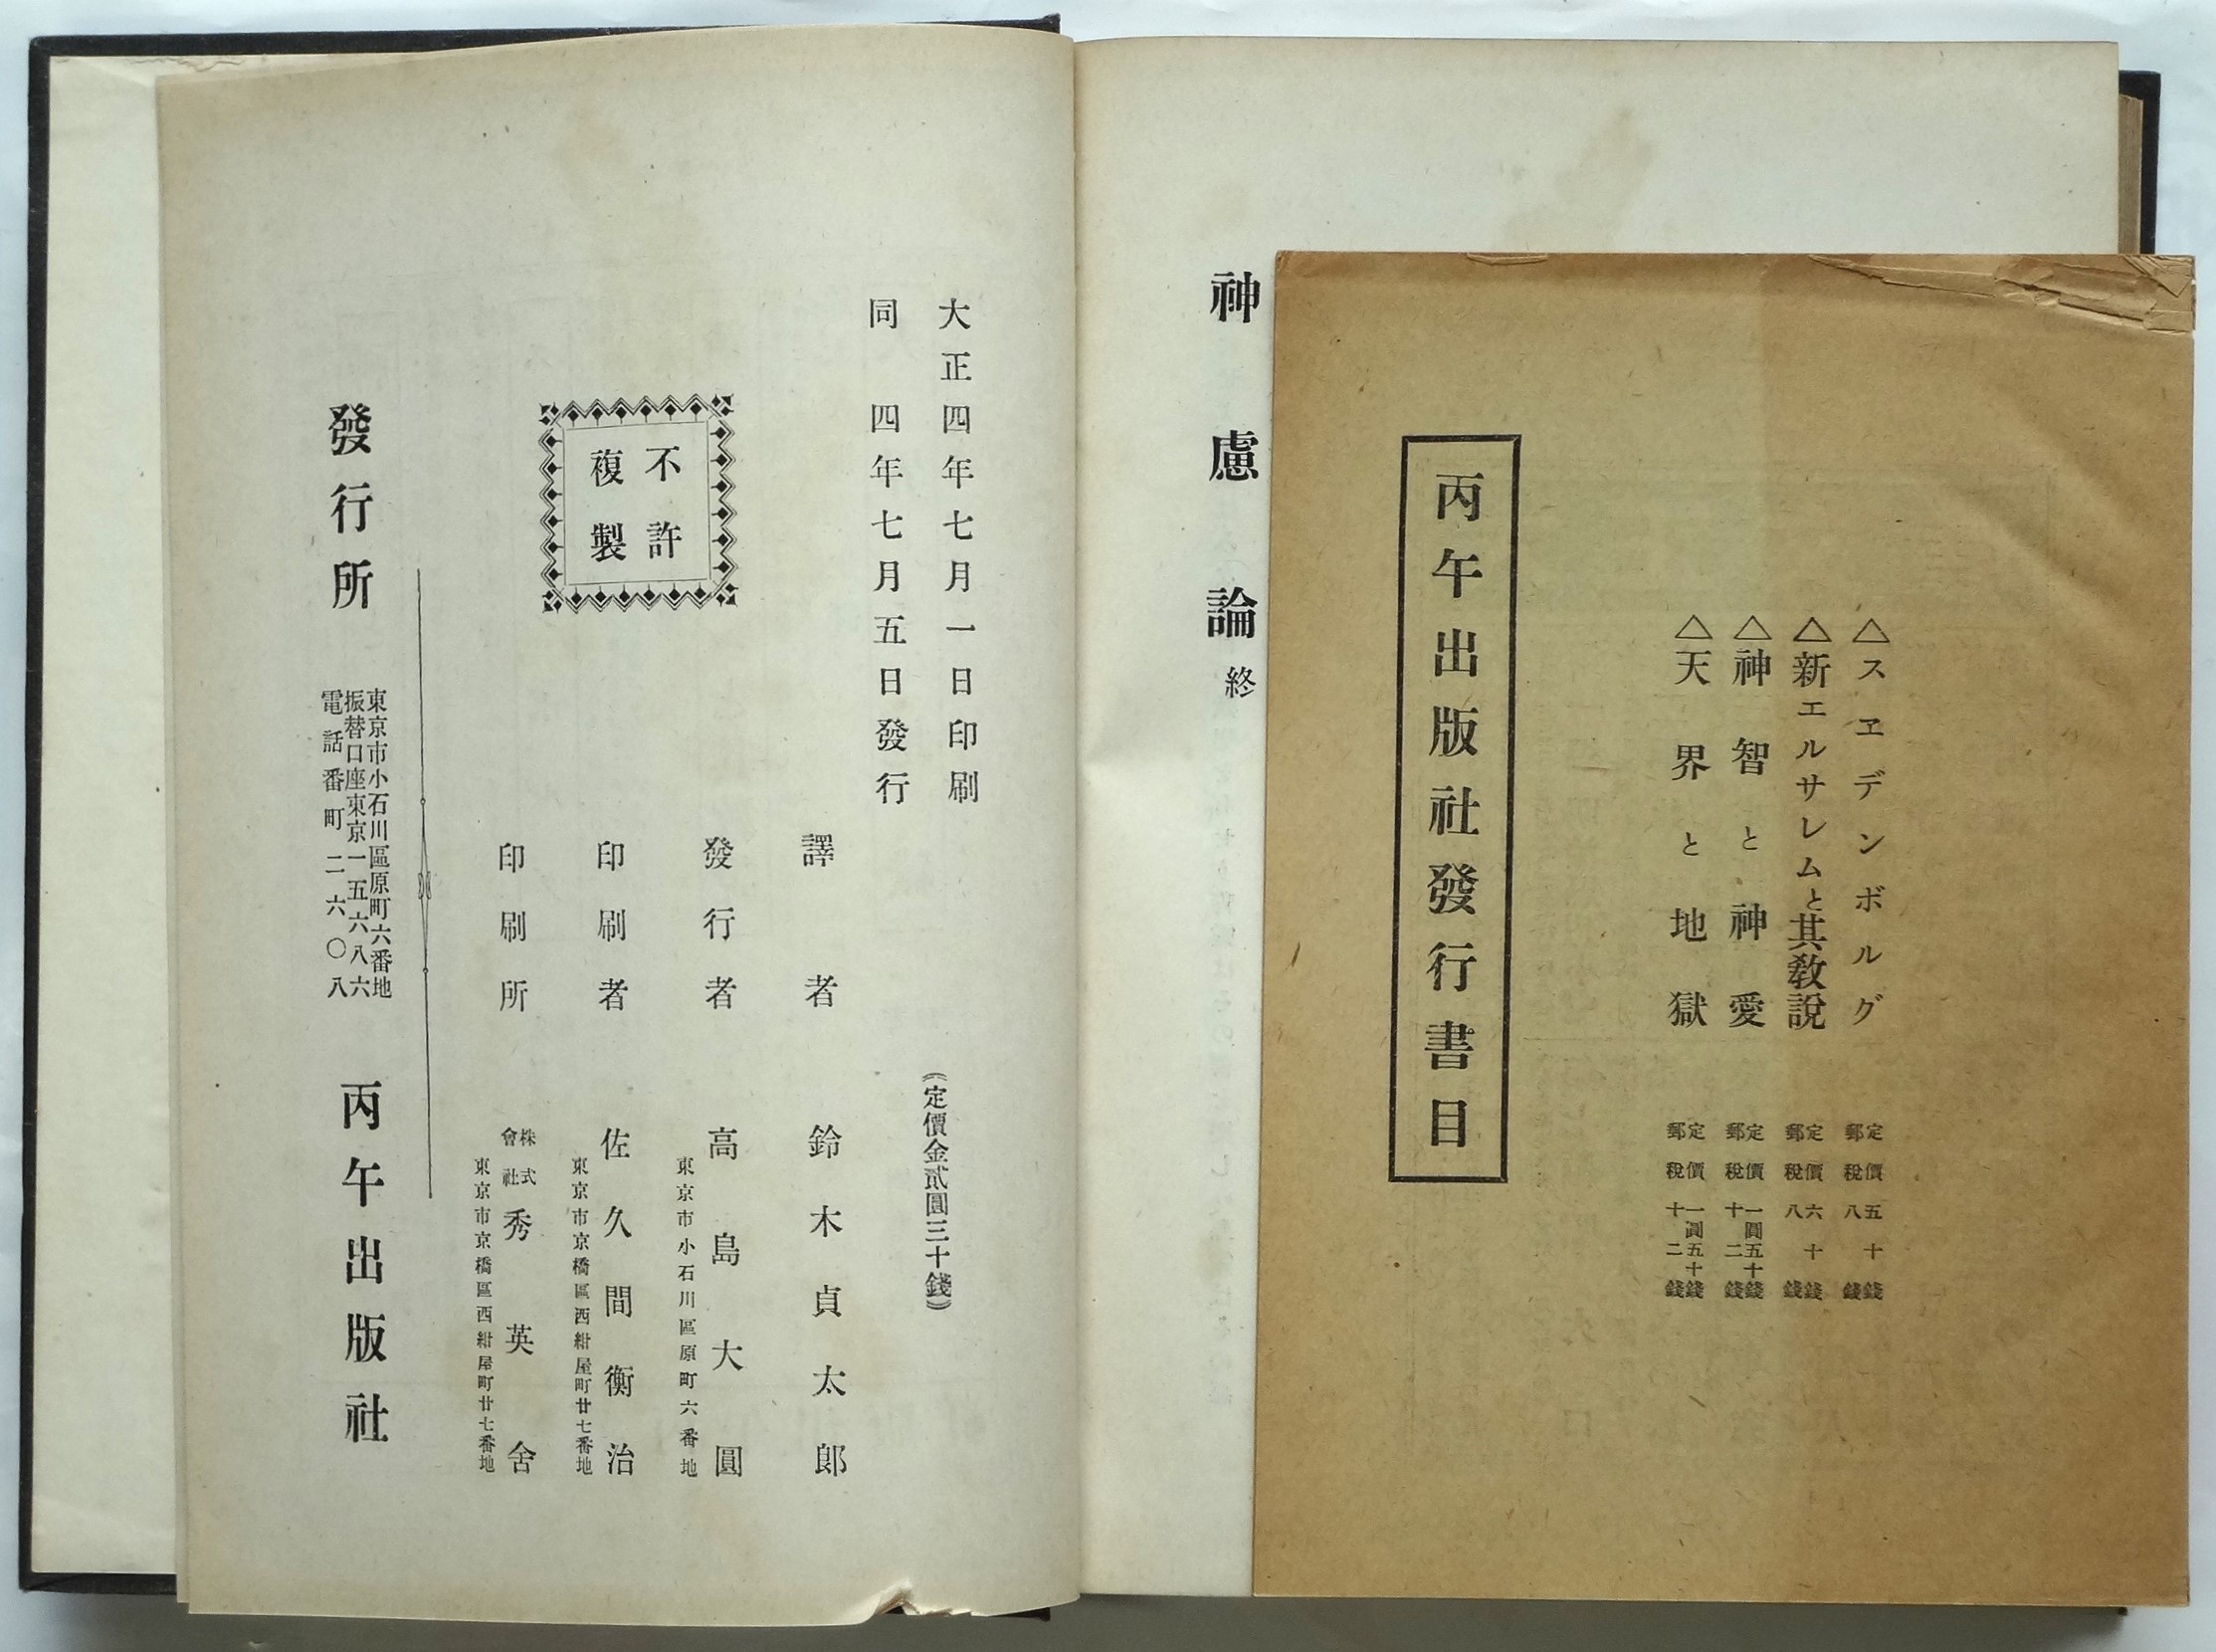 △スヱデンボルグ
定價五十錢
郵稅八錢
△新エルサレムと其敎說
定價六十錢
郵稅八錢
△神智と神愛
定價一圓五十錢
郵稅十二錢
△天界と地獄
定價一圓五十錢
郵稅十二錢
丙午出版社發行書目
神慮論終
大正四年七月一日印刷
同四年七月五日發行
(定價金貳圓三十錢)
譯者 鈴木貞太郎
發行者 高島大圓
東京市小石川區原町六番地
不許
複製
印刷者 佐久間衡治
東京市京橋區西紺屋町廿七番地
印刷所 株式會社秀英舍
東京市京橋區西紺屋町廿七番地
發行所
東京市小石川區原町六番地
振替口座東京一五六八六
電話番町二六〇八
丙午出版社